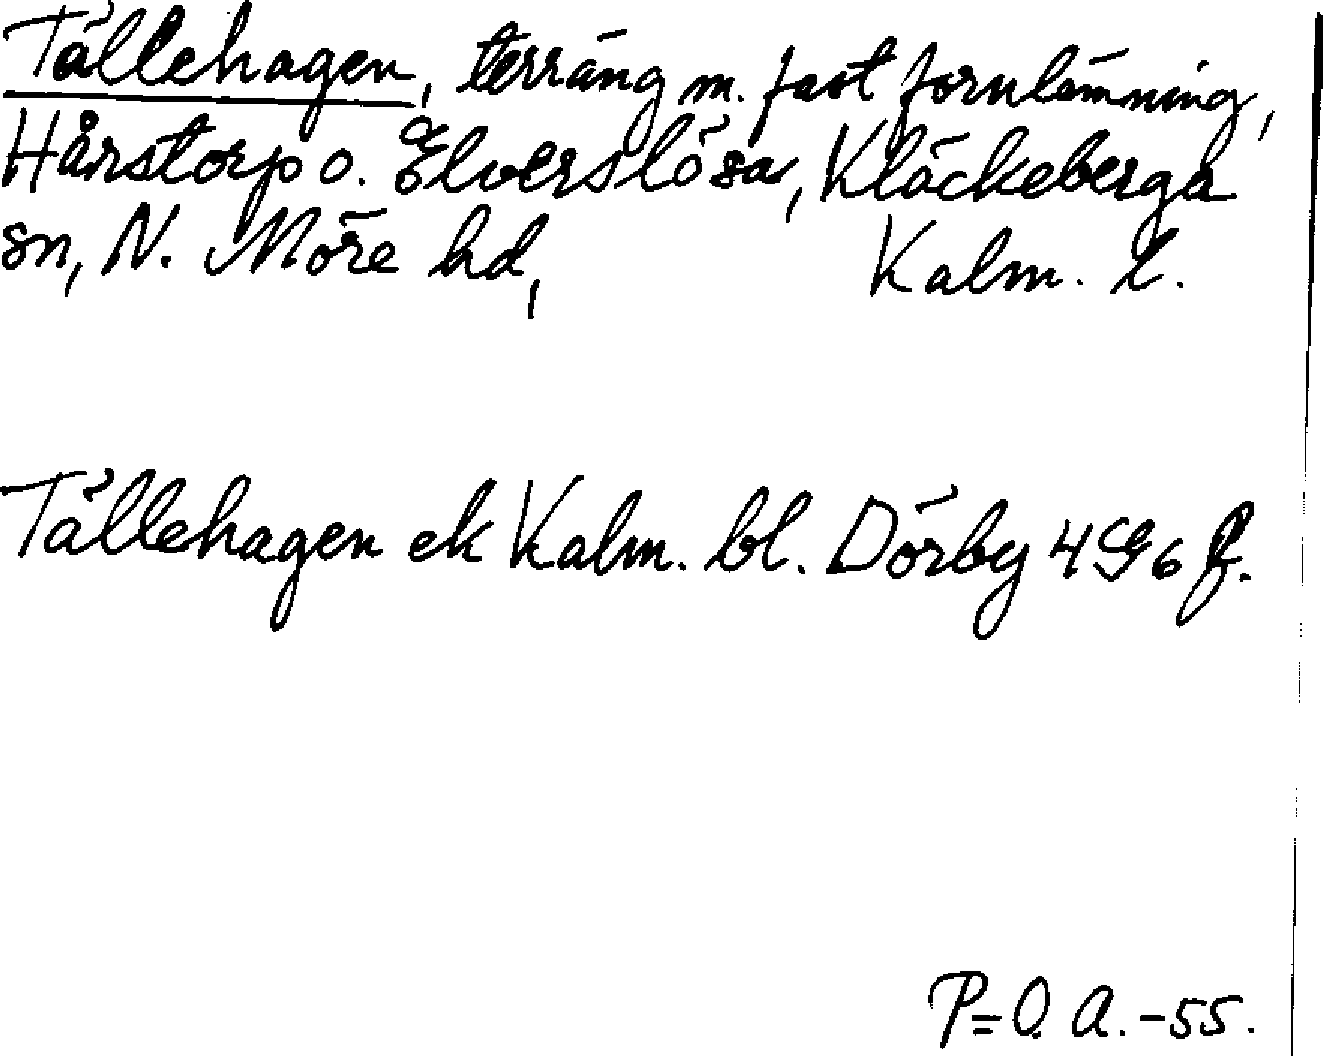 Tällehagen, terräng m. fast fornlämning,
Hårstorp o. Elverslösa, Kläckeberga
sn, N. Möre hd, Kalm. l.
Tällehagen ek Kalm. bl. Dörby 4G6f.
P=O A.-55.